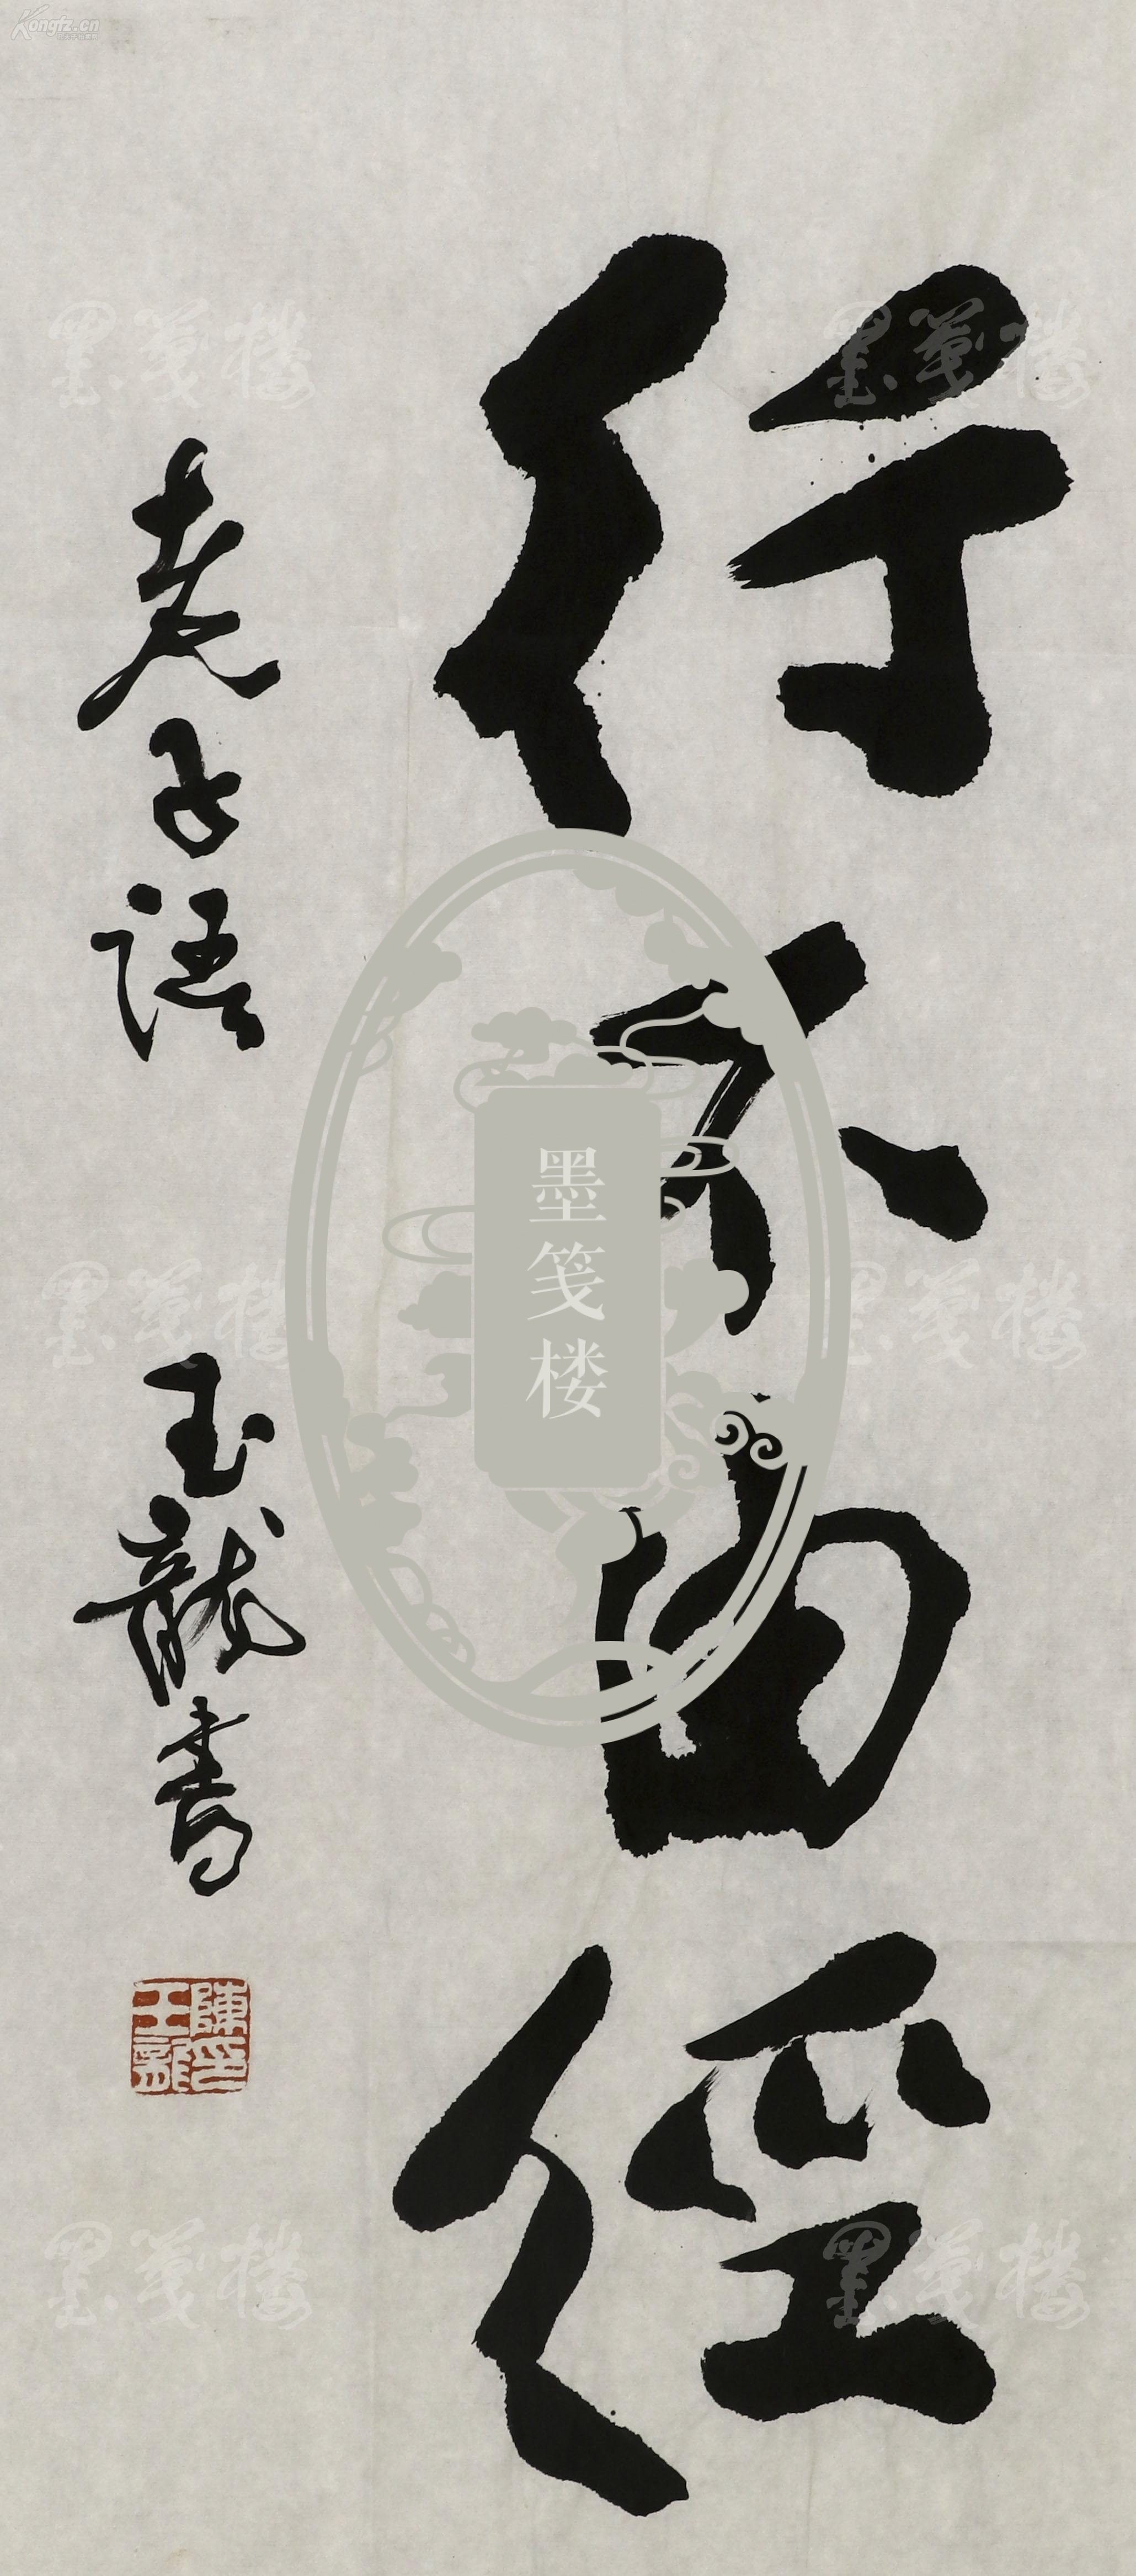 行不由徑
老子語
玉龍書
陳玉龍印
墨笺楼
Kongfz.cn
墨笺楼
墨笺楼
墨笺楼
墨笺楼
墨笺楼
墨笺楼